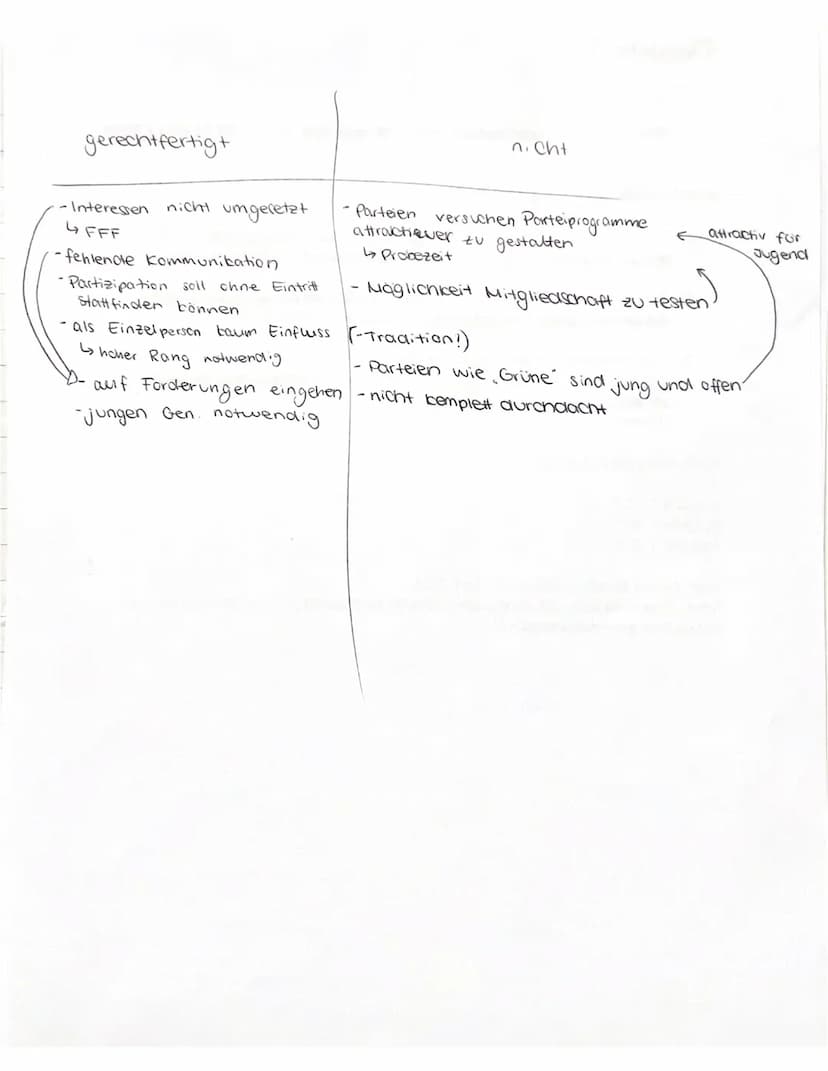 gerechtfertigt
nicht
- Interessen nicht umgesetzt
↳ FFF
- fehlende Kommunikation
- Partizipation soll ohne Eintritt
stattfinden können
- als Einzelperson kaum Einfluss
↳ hoher Rang notwendig
- auf Forderungen eingehen
- jungen Gen. notwendig
- Parteien versuchen Parteiprogramme
attractiever zu gestalten
↳ Probezeit
attractiv für
Jugend
- Möglichkeit Mitgliedschaft zu testen
(-Tradition!)
- Parteien wie „Grüne“ sind jung und offen
- nicht komplett durchdacht